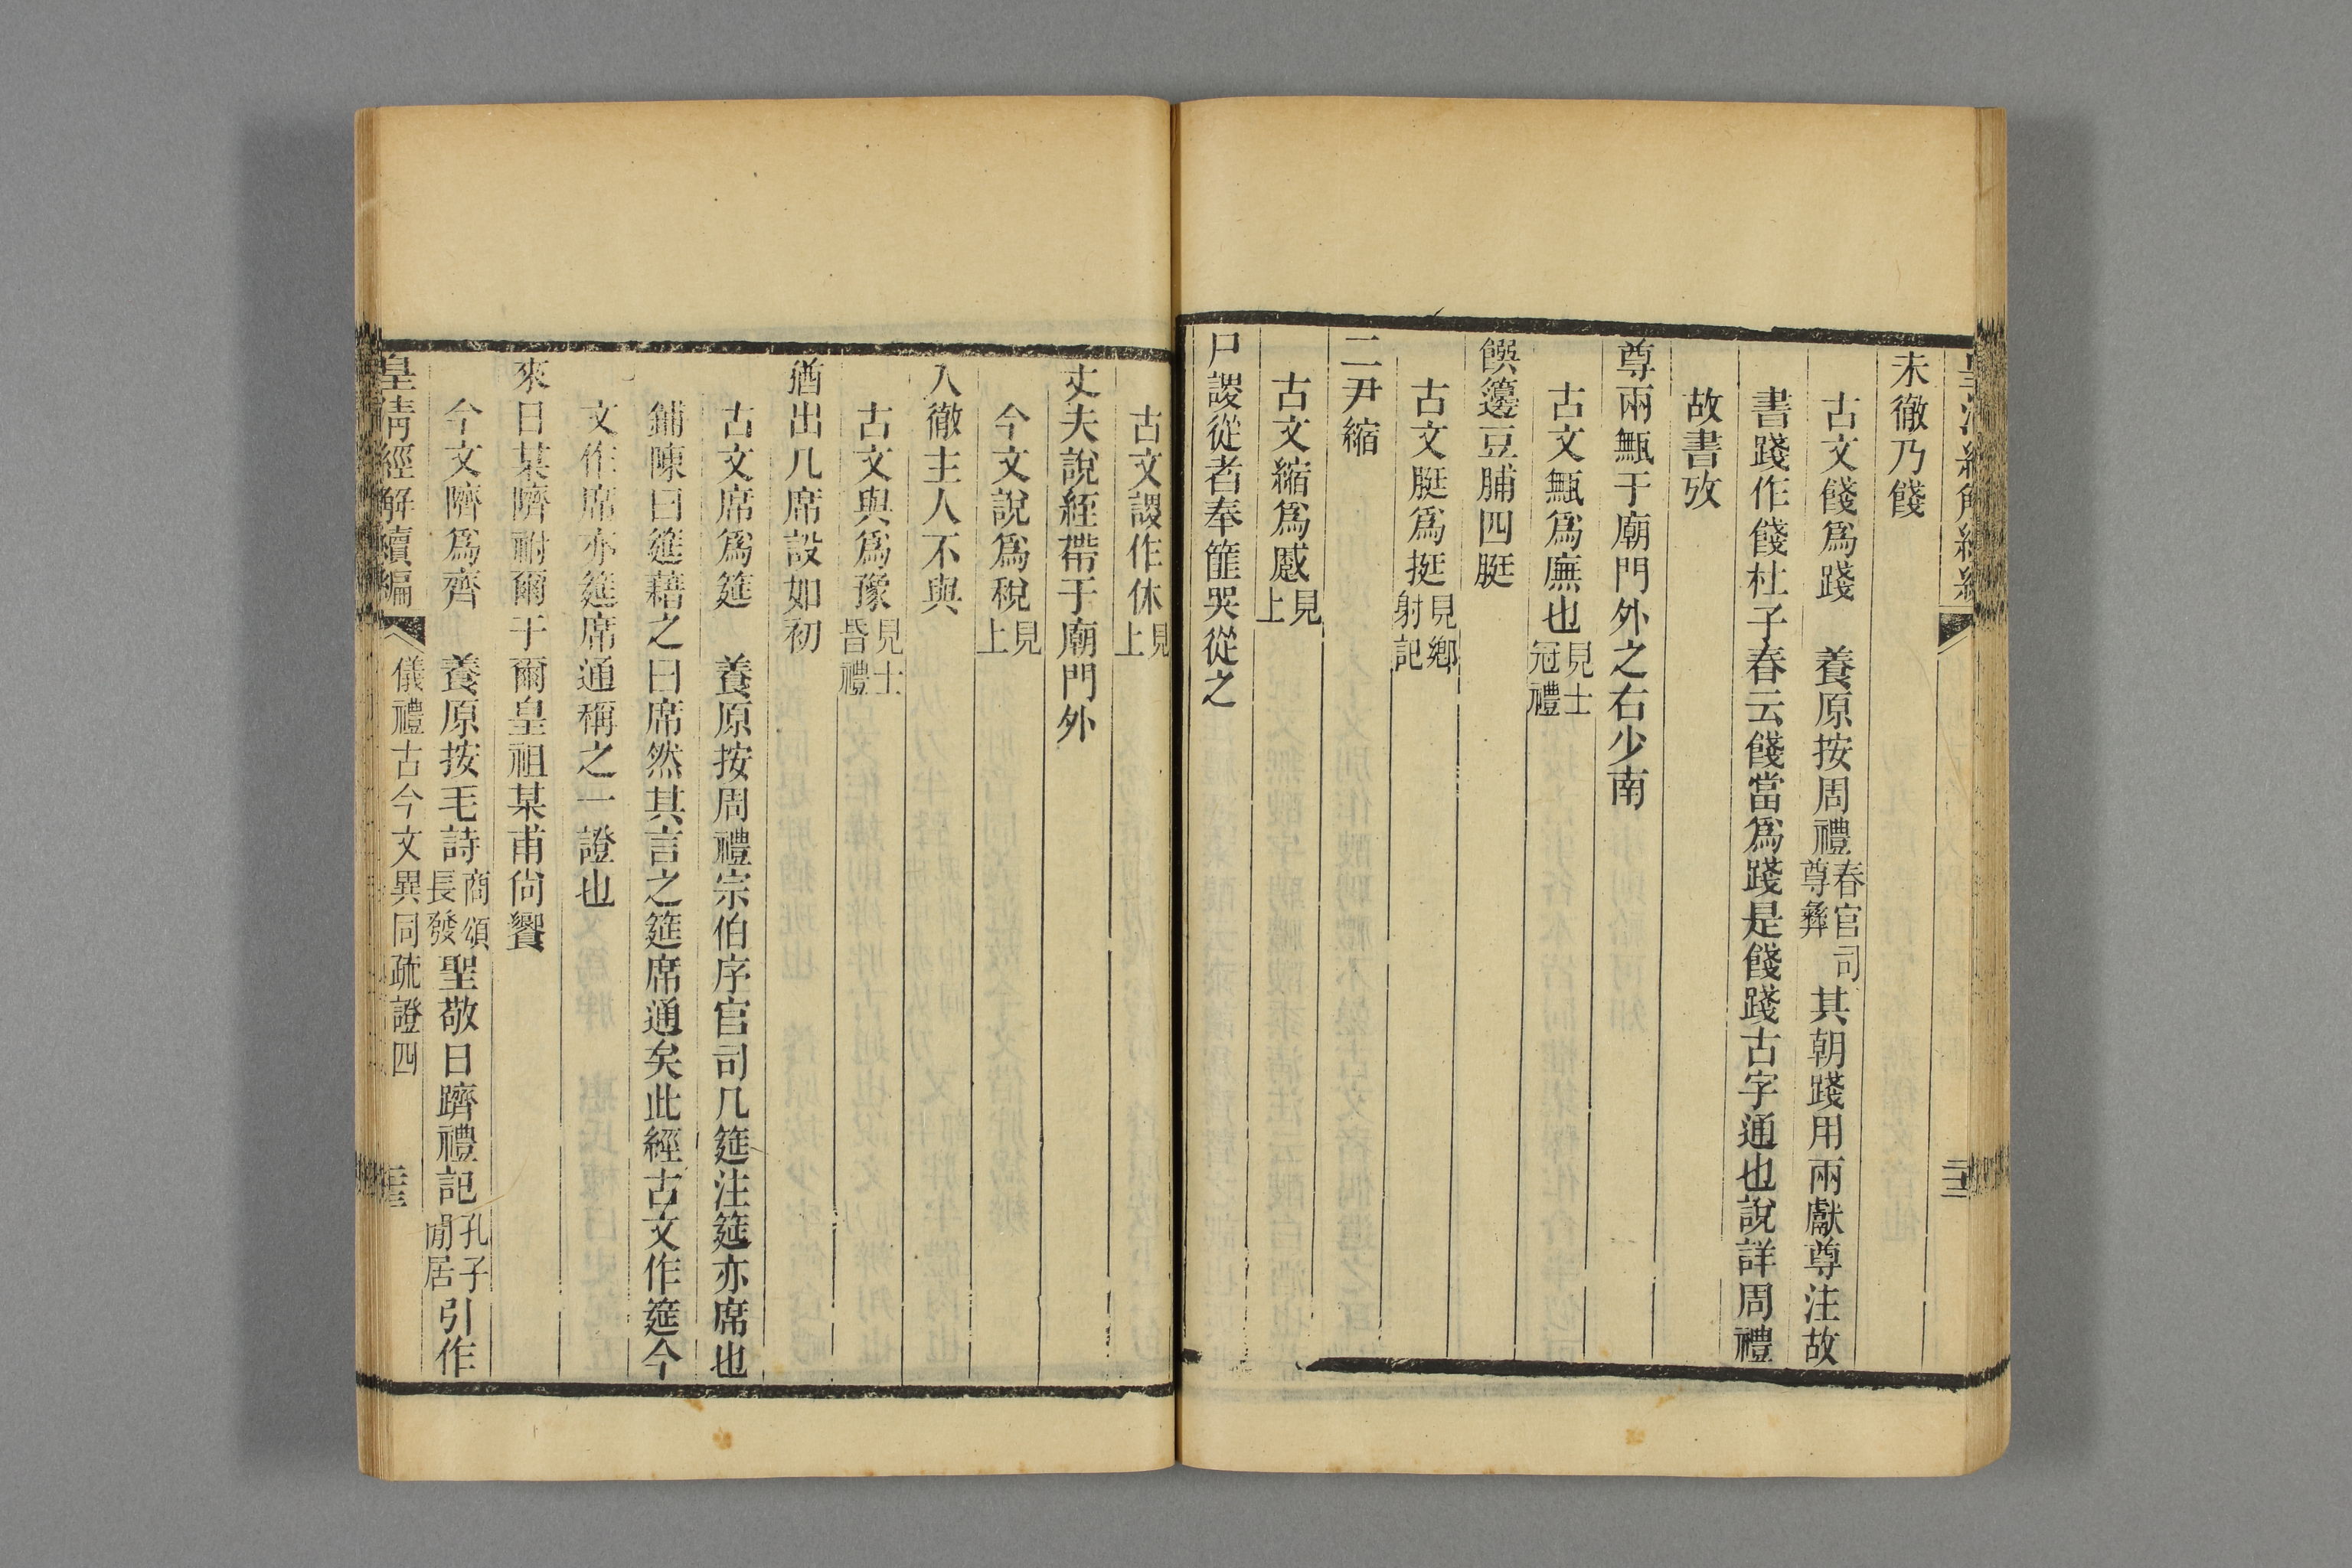 未徹乃餞
古文餞爲踐　養原按周禮春官司尊彝其朝踐用兩獻尊注故
書踐作餞杜子春云餞當爲踐是餞踐古字通也說詳周禮
故書攷
尊兩甒于廟門外之右少南
古文甒爲廡也見士冠禮
饌籩豆脯四脡
古文脡爲挺見鄉射記
二尹縮
古文縮爲蹙見上
尸謖從者奉篚哭從之
古文謖作休見上
丈夫說絰帶于廟門外
今文說爲稅見上
入徹主人不與
古文與爲豫見士昏禮
猶出几席設如初
古文席爲筵　養原按周禮宗伯序官司几筵注筵亦席也
鋪陳曰筵藉之曰席然其言之筵席通矣此經古文作筵今
文作席亦筵席通稱之一證也
來日某隮祔爾于爾皇祖某甫尙饗
今文隮爲齊　養原按毛詩商頌長發聖敬日躋禮記孔子閒居引作
皇淸經解續編　儀禮古今文異同疏證四